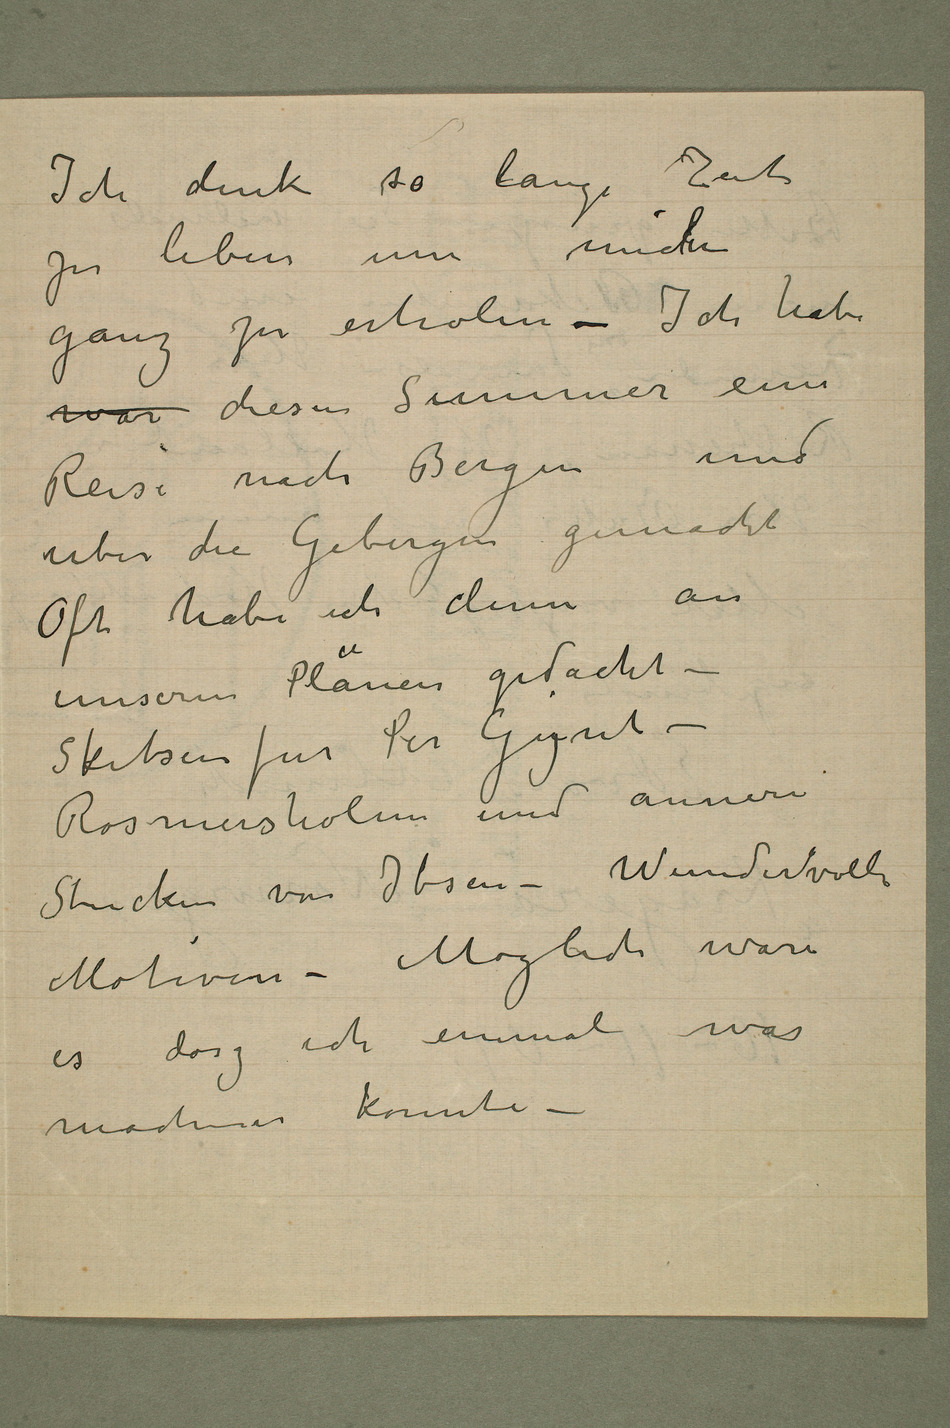 Ich denk so lange Zeit
zu leben um mich
ganz zu erholen – Ich habe
war diesen Summer eine
Reise nach Bergen und
uber die Gebergen gemacht
Oft habe ich denn an
unseren Plänen gedacht –
Skitsen fur Per Gÿnt –
Rosmersholm und annere
Stucken von Ibsen – Wundervolle
Motiven – Moglich ware
es dasz ich einmal was
machen konnte –